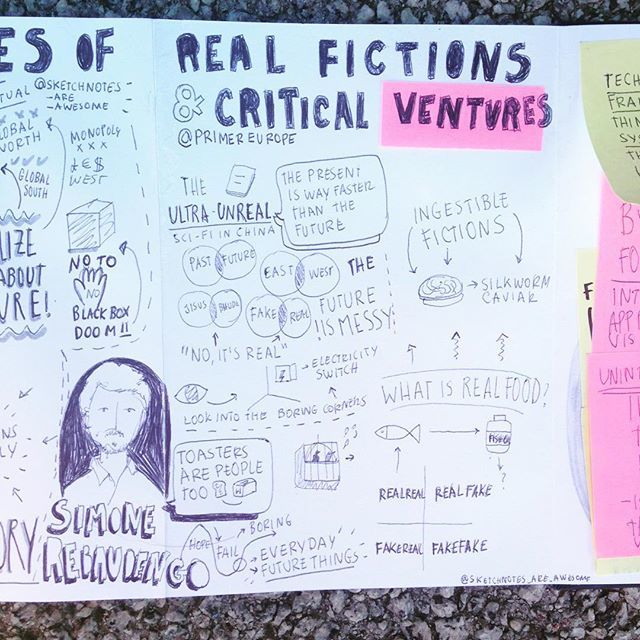 ES OF
@SKETCHNOTES
-ARE
-AWESOME
TUAL
GLOBAL
NORTH
GLOBAL
SOUTH
MONOPOLY
x x x
¥ € $
WEST
LIZE
ABOUT
URE!
NO TO
NO
BLACK BOX
DOOM!!
NS
LY
ORY
SIMONE
REBAUDENGO
REAL FICTIONS
& CRITICAL VENTURES
@PRIMEREUROPE
THE
ULTRA-UNREAL
SCI-FI IN CHINA
THE PRESENT
IS WAY FASTER
THAN THE
FUTURE
PAST FUTURE
EAST WEST
FAKE REAL
THE
FUTURE
IS MESSY
"NO, IT'S REAL"
→ ELECTRICITY
SWITCH
LOOK INTO THE BORING CORNERS
TOASTERS
ARE PEOPLE
TOO
HOPE
FAIL
BORING
EVERYDAY
FUTURE THINGS
INGESTIBLE
FICTIONS
→ SILKWORM
CAVIAR
WHAT IS REAL FOOD?
?
REALREAL REALFAKE
FAKEREAL FAKEFAKE
@SKETCHNOTES_ARE_AWESOME
TECH
FRA
THIN
SY
T
B
FO
INT
APP
IS
UNIN